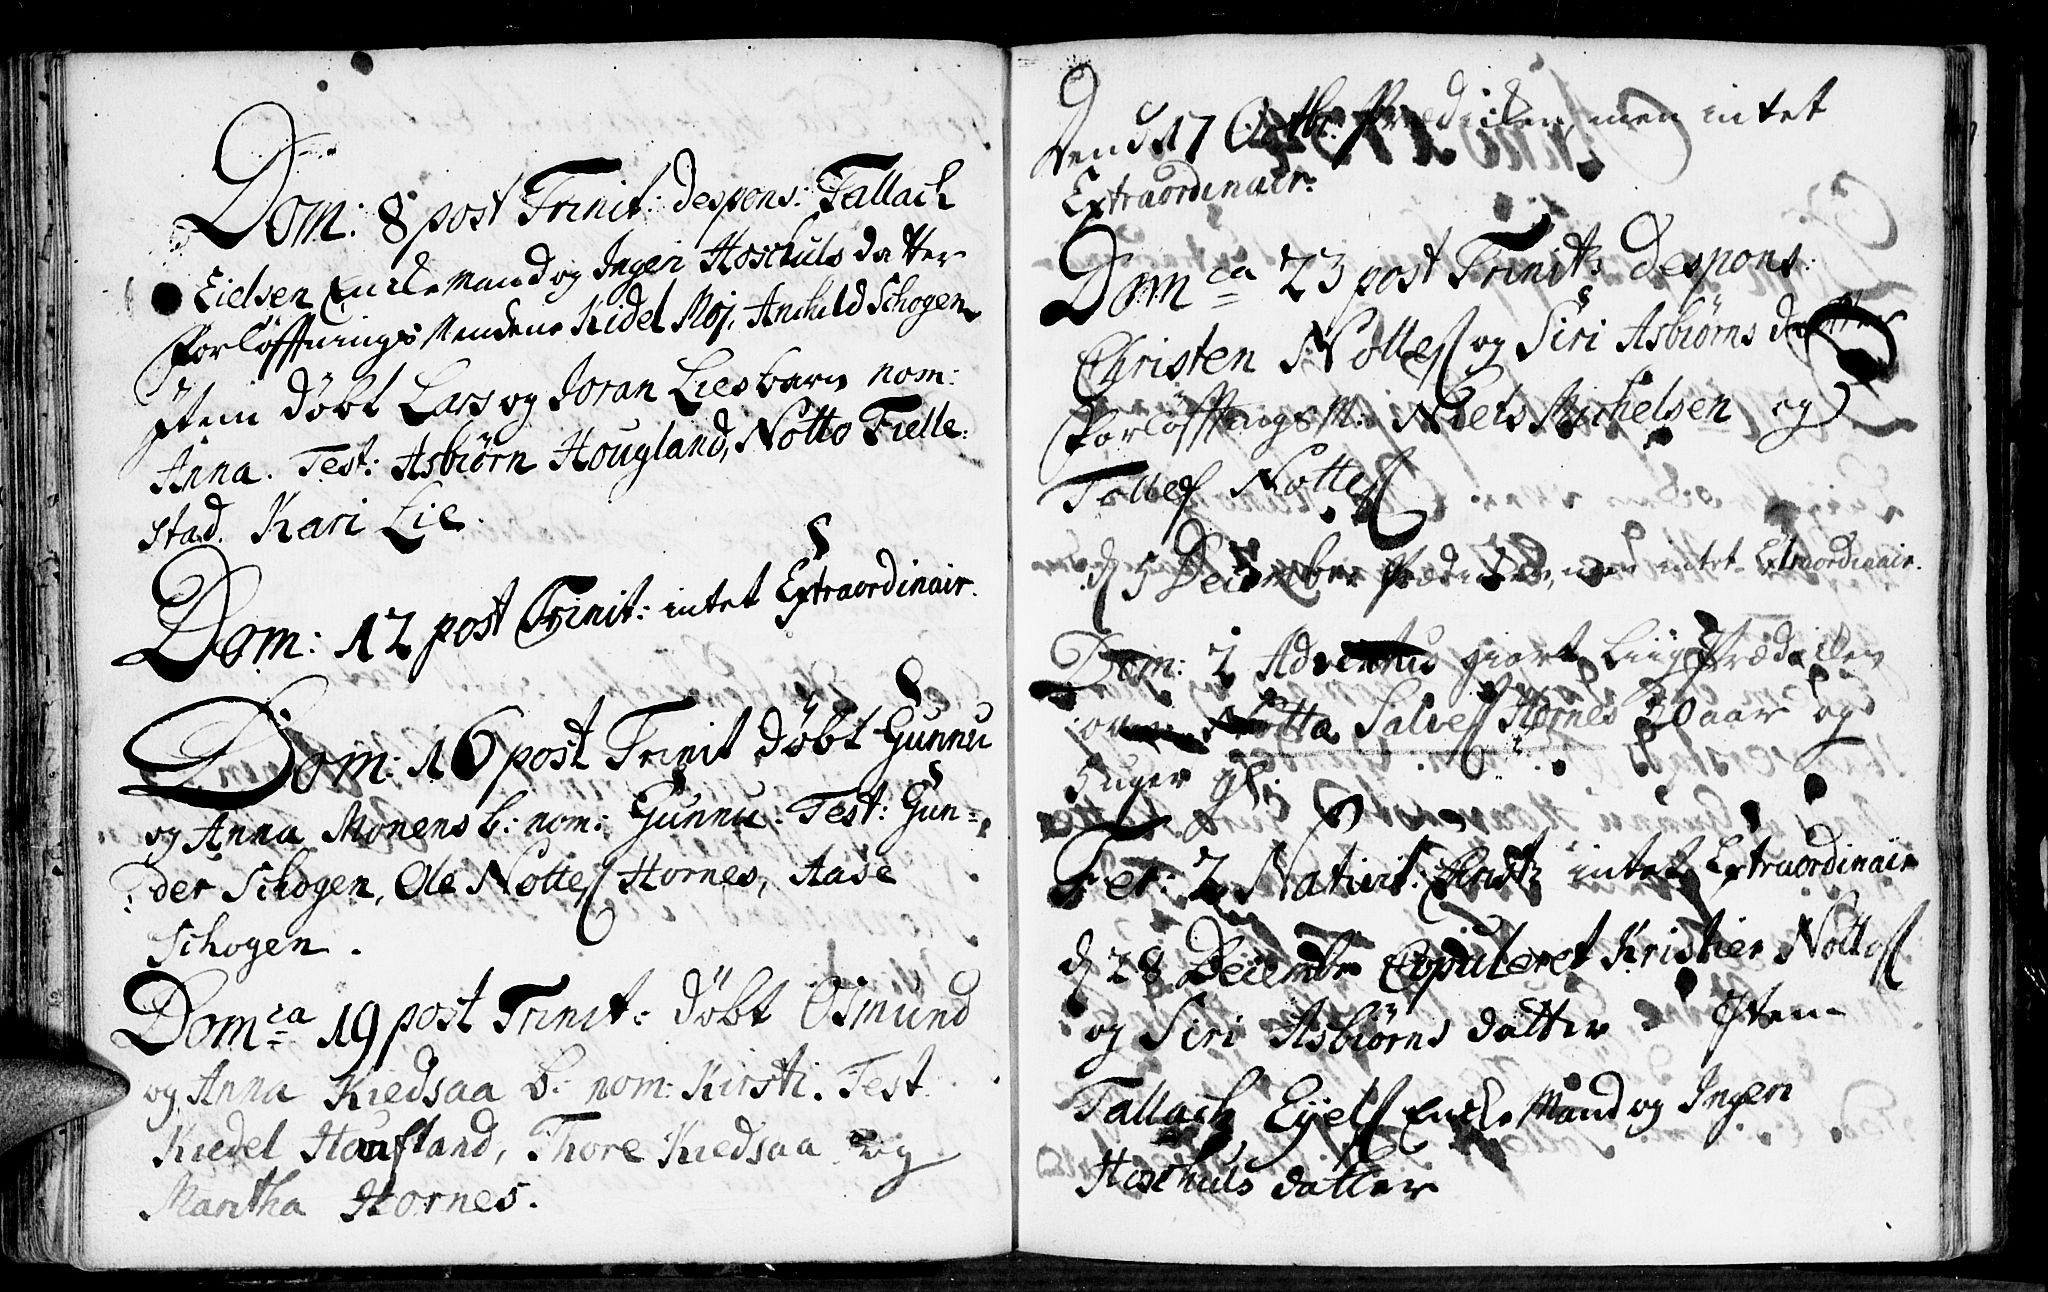 Dom: 8 post Trinit: Despons: Tallach
Eielsen Enckemand og Ingeri Hoschuls datter
Forløffnings Mendene Kidel Moj. Anchild Schogen
Item døbt Lars og Joran Lies barn nom:
Anna. Test: Asbiørn Hougland, Notto Fielle:
stad. Kari Lie.
Dom: 12 post Trinit: intet Extraordinair.
Dom: 16 post Trinit døbt Gunnu
og Anna Monens b: nom: Gunnu: Test: Gun=
der Schogen, Ole Nottes Hornes, Aase
Schogen.
Domca 19 post Trinit: døbt Osmund
og Anna Kiedsaa b: nom: Kirsti. Test
Kiedel Haufland, Thore Kiedsaa og
Maritha Hornes.
Dend 17 Octbr. Prædicken, men intet
Extraordinair:
Domca 23 post Trinit: Despons:
Christen Nottes og Siri Asbiørns datter
Forløffnings M: Niels Michelsen og
Tolles Nottes
d 5 December Prædicken, men intet Extraordinair.
Dom: 2 Adventus giort Liig Prædicken
over Notto Salves Hornes 30 aar og
5 uger gl:
Fer: 2 Nativit: Christi intet Extraordinair
d 28 Decembr Copuleret Kristien Nottes
og Siri Asbiørns datter Item
Tallach Eyels Enckemand og Ingeri
Hoschuls datter